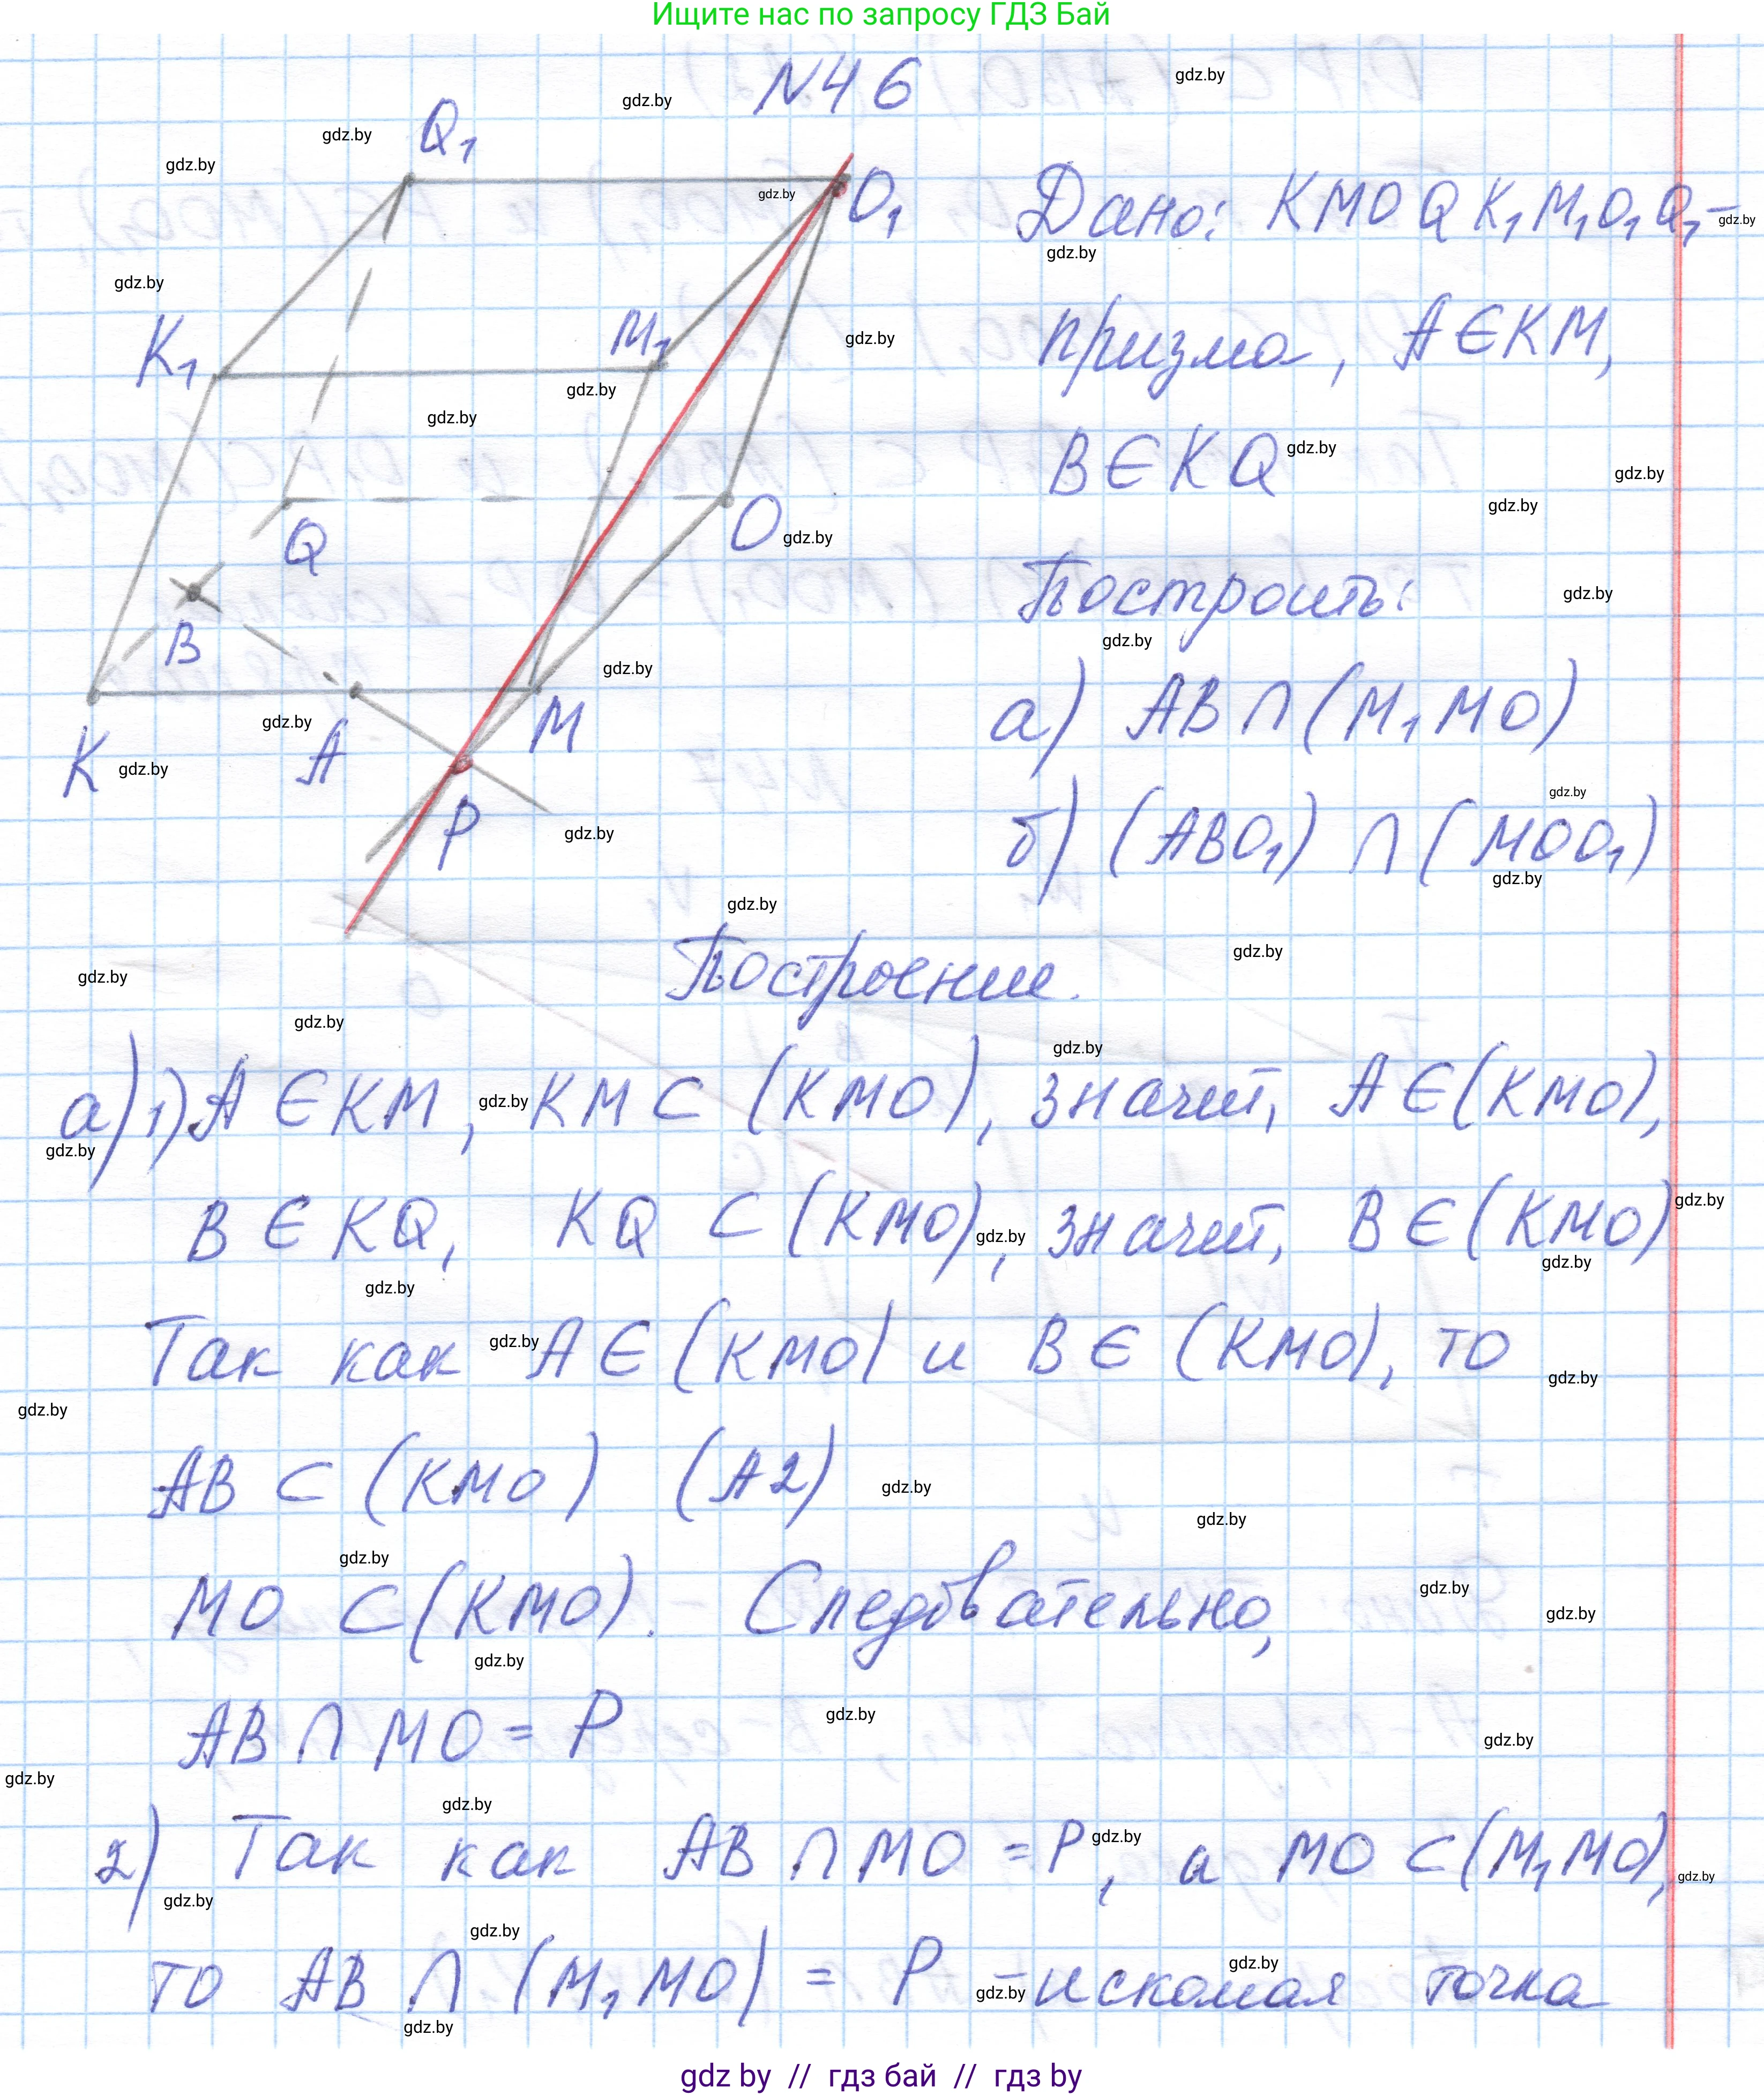 Ищите нас по запросу ГДЗ Бай
N46
Q₁
O₁
K₁
M₁
Q
O
B
K
A
M
P
Дано: KMOQK₁M₁O₁Q₁ –
призма, A∈KM,
B∈KQ
Построить:
а) AB∩(M₁MO)
б) (ABO₁)∩(MOO₁)
Построение.
а) 1) A∈KM, KM⊂(KMO), значит, A∈(KMO),
B∈KQ, KQ⊂(KMO), значит, B∈(KMO)
Так как A∈(KMO) и B∈(KMO), то
AB⊂(KMO) (A2)
MO⊂(KMO). Следовательно,
AB∩MO = P
2) Так как AB∩MO = P, а MO⊂(M₁MO),
то AB∩(M₁MO) = P – искомая точка
gdz by // гдз бай // гдз by